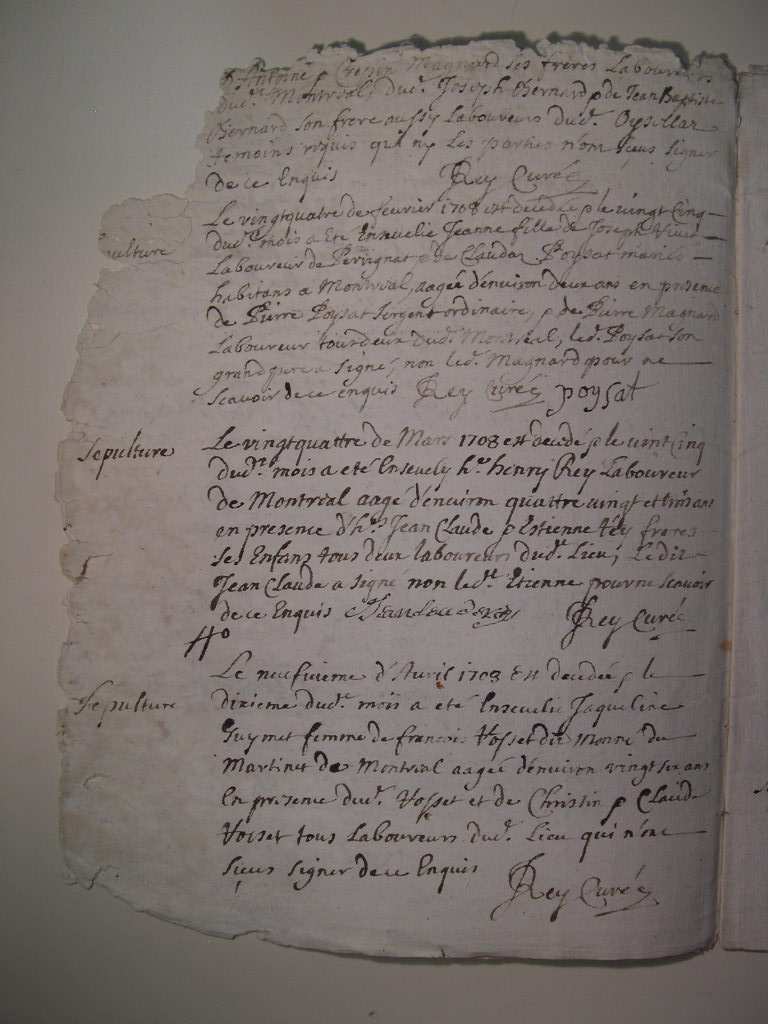 Antoine & Claude Magnard ses freres Laboureurs
dud.t Montreal, dud.t Joseph Bernard & de Jean Baptiste
Bernard son frere aussy Laboureurs dud.t Oysellaz
temoins requis qui ny les parties n'ont sçeus signer
de ce Enquis Rey Curé
Sepulture
Le vingtquatre de fevrier 1708 est decedée & le vingt cinq
dud.t mois a eté Ensevelie Jeanne fille de Joseph
Laboureur de & de Claudaz Poysat mariés
habitans a Montreal, aagée d'environ deux ans en presence
de Pierre Poysat sergent ordinaire, & de Pierre Magnard
Laboureur tous deux dud.t Montreal, led.t Poysat son
grand pere a signé, non led.t Magnard pour ne
scavoir de ce enquis Rey Curé poysat
Sepulture
Le vingtquattre de Mars 1708 est decedé & le vint cinq
dud.t mois a eté Ensevely h.e henry Rey Laboureur
de Montreal aagé d'environ quattre vingt et trois ans
en presence d'h.es Jean Claude & Estienne Rey freres
ses Enfans tous deux laboureurs dud.t Lieu; Ledit
Jean Claude a signé non led.t Etienne pour ne scavoir
de ce Enquis Rey Curé
4o
Sepulture
Le neufvieme d'Avril 1708 Est decedée & le
dixieme dud.t mois a eté Ensevelie Jaqueline
Guymet femme de francois Vosset dit Monne du
Martinet de Montreal aagée d'environ vingt six ans
En presence dud.t Vosset et de Christin & Claude
Vosset tous Laboureurs dud.t Lieu qui n'ont
sçeus signer de ce Enquis
Rey Curé